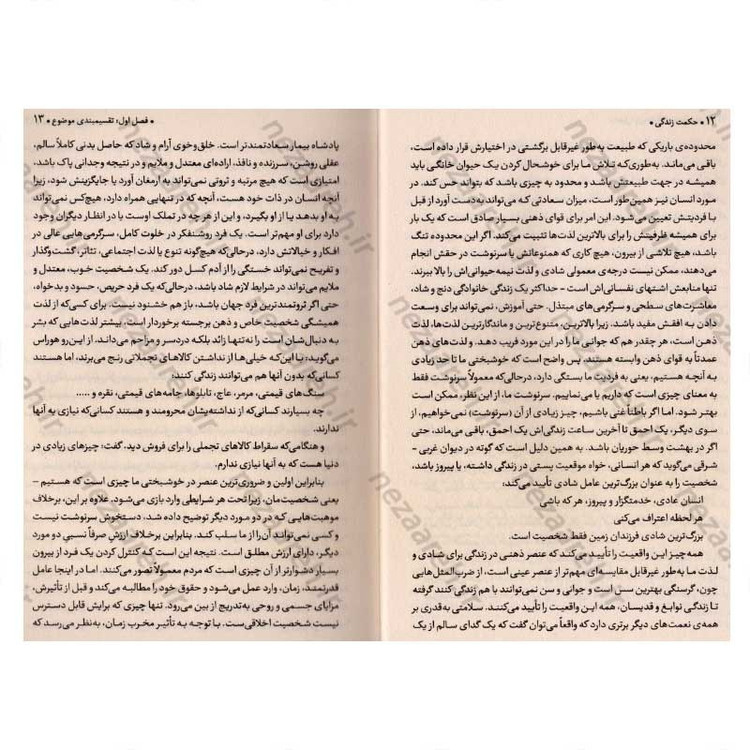 ۱۲ • حکمت زندگی •
محدوده‌ی باریکی که طبیعت به‌طور غیرقابل برگشتی در اختیارش قرار داده است،
باقی می‌ماند. به‌طوری‌که تلاش ما برای خوشحال کردن یک حیوان خانگی باید
همیشه در جهت طبیعتش باشد و محدود به چیزی باشد که بتواند حس کند. در
مورد انسان نیز همین‌طور است، میزان سعادتی که می‌تواند به‌دست آورد از قبل
با فردیتش تعیین می‌شود. این امر برای قوای ذهنی بسیار صادق است که یک بار
برای همیشه ظرفیتش را برای بالاترین لذت‌ها تثبیت می‌کند. اگر این محدوده تنگ
باشد، هیچ تلاشی از بیرون، هیچ کاری که همنوعانش یا سرنوشت در حقش انجام
می‌دهند، ممکن نیست درجه‌ی معمولی شادی و لذت نیمه حیوانی‌اش را بالا ببرند.
تنها منابعش اشتهای نفسانی‌اش است – حداکثر یک زندگی خانوادگی دنج و شاد،
معاشرت‌های سطحی و سرگرمی‌های مبتذل. حتی آموزش، نمی‌تواند برای وسعت
دادن به افقش مفید باشد. زیرا بالاترین، متنوع‌ترین و ماندگارترین لذت‌ها، لذت
ذهن است، هر چقدر هم که جوانی ما را در این مورد فریب دهد. و لذت‌های ذهن
عمدتاً به قوای ذهن وابسته هستند. پس واضح است که خوشبختی ما تا حد زیادی
به آنچه هستیم، یعنی به فردیت ما بستگی دارد، درحالی‌که معمولاً سرنوشت فقط
به معنای چیزی است که داریم یا می‌نماییم. سرنوشت ما، از این نظر، ممکن است
بهتر شود. اما اگر باطناً غنی باشیم، چیز زیادی از آن (سرنوشت) نمی‌خواهیم. از
سوی دیگر، یک احمق تا آخرین ساعت زندگی‌اش یک احمق، باقی می‌ماند، حتی
اگر در بهشت وسط حوریان باشد. به همین دلیل است که گوته در دیوان غربی –
شرقی می‌گوید که هر انسانی، خواه موقعیت پستی در زندگی داشته، یا پیروز باشد،
شخصیت را به عنوان بزرگ‌ترین عامل شادی تأیید می‌کند:
انسان عادی، خدمتگزار و پیروز، هر که باشی
هر لحظه اعتراف می‌کنی
بزرگ‌ترین شادی فرزندان زمین فقط شخصیت است.
همه‌چیز این واقعیت را تأیید می‌کند که عنصر ذهنی در زندگی برای شادی و
لذت ما به‌طور غیرقابل مقایسه‌ای مهم‌تر از عنصر عینی است، از ضرب‌المثل‌هایی
چون، گرسنگی بهترین سس است و جوانی و سن نمی‌توانند با هم زندگی کنند گرفته
تا زندگی نوابغ و قدیسان، همه این واقعیت را تأیید می‌کنند. سلامتی به‌قدری بر
همه‌ی نعمت‌های دیگر برتری دارد که واقعاً می‌توان گفت که یک گدای سالم از یک
• فصل اول؛ تقسیمبندی موضوع • ۱۳
پادشاه بیمار سعادتمندتر است. خلق‌وخوی آرام و شاد که حاصل بدنی کاملاً سالم،
عقلی روشن، سرزنده و نافذ، اراده‌ای معتدل و ملایم و در نتیجه وجدانی پاک باشد،
امتیازی است که هیچ مرتبه و ثروتی نمی‌تواند به ارمغان آورد یا جایگزینش شود، زیرا
آنچه انسان در ذات خود هست، آنچه که در تنهایی همراه دارد، هیچ‌کس نمی‌تواند
به او بدهد یا از او بگیرد، و این از هر چه در تملک اوست یا در انظار دیگران وجود
دارد برای او مهم‌تر است. یک فرد روشنفکر در خلوت کامل، سرگرمی‌هایی عالی در
افکار و خیالاتش دارد، درحالی‌که هیچ‌گونه تنوع یا لذت اجتماعی، تئاتر، گشت‌وگذار
و تفریح نمی‌تواند خستگی را از آدم کسل دور کند. یک شخصیت خوب، معتدل و
ملایم می‌تواند در شرایط لازم شاد باشد، درحالی‌که یک فرد حریص، حسود و بدخواه،
حتی اگر ثروتمندترین فرد جهان باشد، باز هم خشنود نیست. برای کسی‌که از لذت
همیشگی شخصیت خاص و ذهن برجسته برخوردار است، بیشتر لذت‌هایی که بشر
به دنبال‌شان است را نه‌تنها زائد بلکه دردسر و مزاحم می‌داند. از این‌رو هوراس
می‌گوید؛ با این‌که خیلی‌ها از نداشتن کالاهای تجملاتی رنج می‌برند، اما هستند
کسانی‌که بدون آنها هم می‌توانند زندگی کنند:
سنگ‌های قیمتی، مرمر، عاج، تابلوها، جامه‌های قیمتی، نقره و .....
چه بسیارند کسانی‌که از نداشته‌یشان محرومند و هستند کسانی‌که نیازی به آنها
ندارند.
و هنگامی‌که سقراط کالاهای تجملی را برای فروش دید، گفت: چیزهای زیادی در
دنیا هست که به آنها نیازی ندارم.
بنابراین اولین و ضروری‌ترین عنصر در خوشبختی ما چیزی است که هستیم –
یعنی شخصیت‌مان، زیرا تحت هر شرایطی وارد بازی می‌شود. علاوه بر این، برخلاف
موهبت‌هایی که در دو مورد دیگر توضیح داده شد، دستخوش سرنوشت نیست
و کسی نمی‌تواند آن را از ما سلب کند. بنابراین برخلاف ارزشِ صرفاً نسبیِ دو مورد
دیگر، دارای ارزش مطلق است. نتیجه این است که کنترل کردن یک فرد از بیرون
بسیار دشوارتر از آن چیزی است که مردم معمولاً تصور می‌کنند. اما در اینجا عامل
قدرتمند، زمان، وارد عمل می‌شود و حقوق خود را مطالبه می‌کند و قبل از تأثیرش،
مزایای جسمی و روحی به‌تدریج از بین می‌رود. تنها چیزی که برایش قابل دسترس
نیست شخصیت اخلاقی‌ست. با توجه به تأثیر مخرب زمان، به‌نظر می‌رسد که
nezaareh.ir